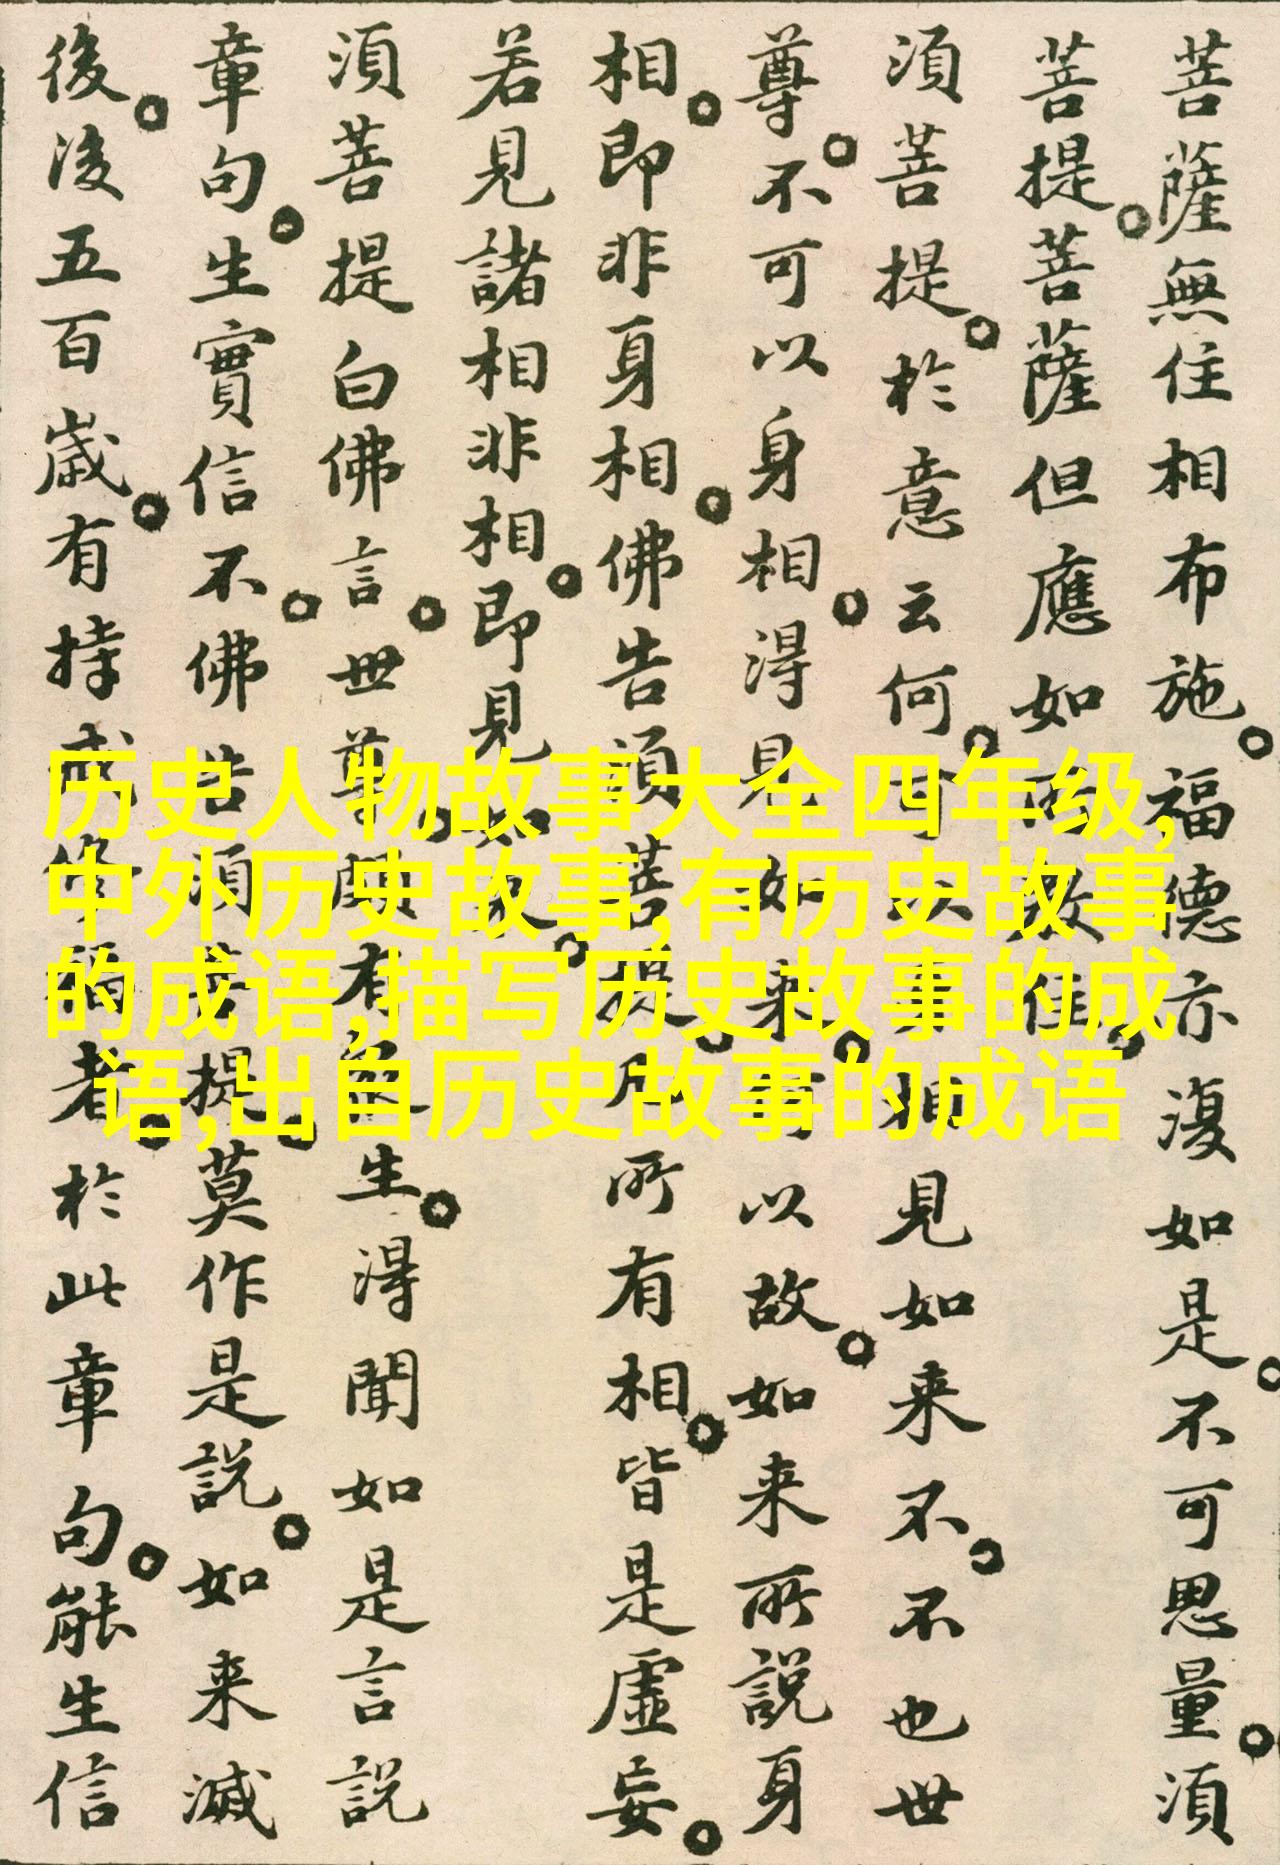 菩薩無住相布施。福德亦復如是。不可思量。須
菩提。菩薩但應如所教住。
須菩提。於意云何。可以身相見如来不。不也世
尊。不可以身相。得見如来。何以故。如来所説身
相。即非身相。佛告須菩提。凡所有相。皆是虚妄。
若見諸相非相。即見如来。
須菩提白佛言。世尊。頗有衆生。得聞如是言説
章句。生實信不。佛告須菩提。莫作是説。如来滅
後。後五百歳。有持戒修福者。於此章句。能生信
历史人物故事大全四年级,
中外历史故事,有历史故事
的成语,描写历史故事的成
语,出自历史故事的成语